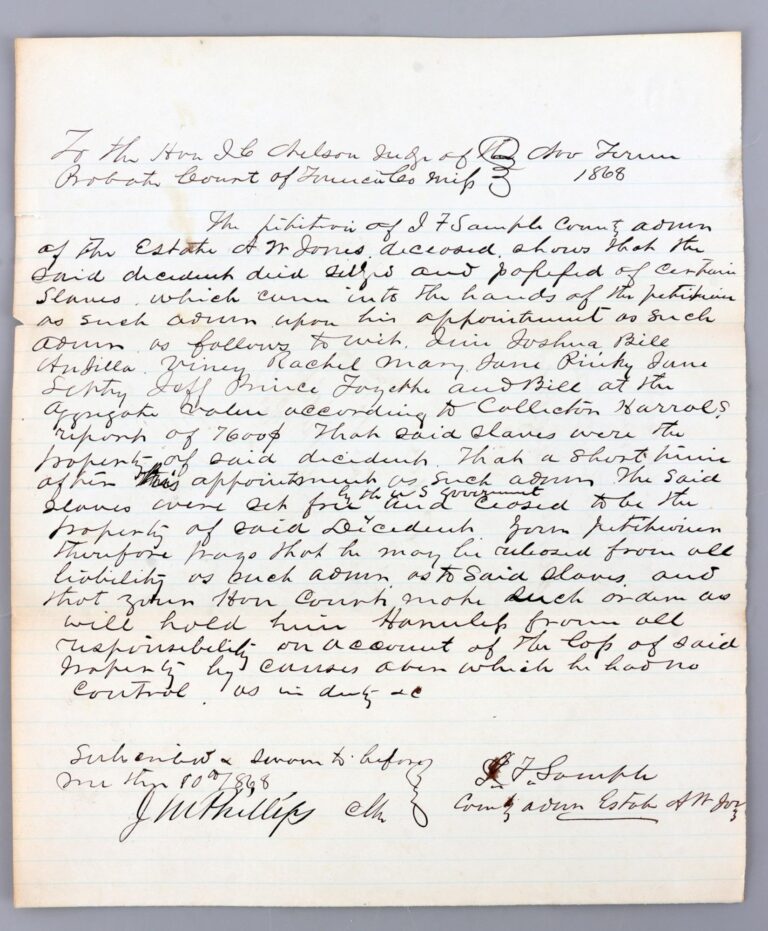 To the Hon J C Nelson Judge of the Nov Term
Probate Court of Tunica Co Miss 1868
The petition of J F Sample County admr
of the Estate A W Jones, deceased, shows that the
said decedent died and possessed of certain
Slaves, which came into the hands of the petitioner
as such admr upon his appointment as such
admr as follows to wit, Jim Joshua Bill
Viney Rachel Mary Jane Pinky Jane
Jeff Prince Fayette and Bill at the
aggregate value according to Collector Harrals
report of 7600$ That said slaves were the
property of said decedent That a short time
after his appointment as such admr the said
slaves were set free by the U S Government and ceased to be the
property of said Decedent Your Petitioner
therefore prays that he may be released from all
liability as such admr as to said slaves, and
that your Hon Court make such orders as
will hold him Harmless from all
responsibility on account of the loss of said
property by causes over which he had no
control, as in duty &c
Subscribed & sworn to before
me this 10th 1868
J. F. Sample
J M Phillips Clk
County admr Estate A W Jones